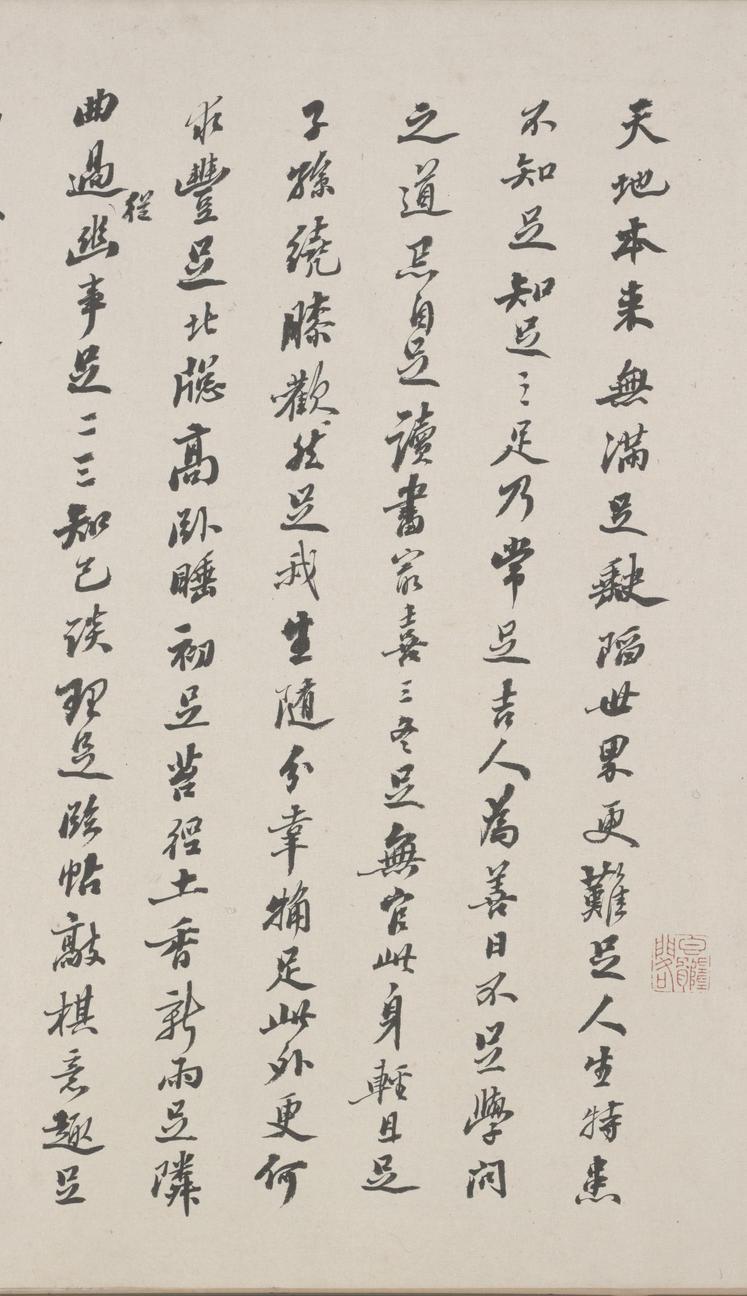 天地本来無滿足缺陷世界更難足人生特患
不知足知足〻足乃常足吉人為善日不足學問
之道忌自足讀書最喜三冬足無官此身輕且足
子孫繞膝歡然足我生隨分足此外更何
求豐足北牕高卧睡初足苔徑土香新雨足隣
曲過從幽事足二三知己談理足臨帖敲棋意趣足